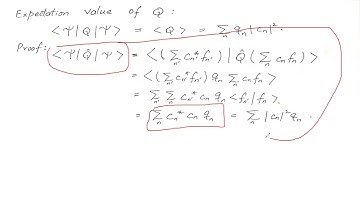 Expectation value of Q :
< Ψ | Q | Ψ > = < Q > = Σn qn |cn|².
Proof: < Ψ | Q̂ | Ψ > = < ( Σn' cn'* fn' ) | Q̂ ( Σn cn fn ) >
= < ( Σn' cn'* fn' ) qn Σn cn fn >
= Σn' Σn cn'* cn qn < fn' | fn >.
= Σn cn* cn qn = Σn |cn|² qn .